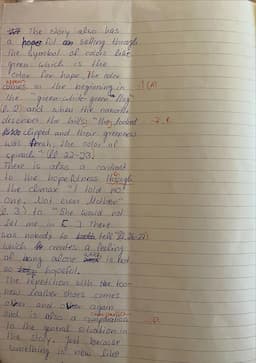 The story also has
a hopeful setting through
the symbol of colors like
green which is the
color for hope. The color
comes in the beginning in
the "green-white-green flag"
(l. 2) and when the narrator
describes the hills: "they looked
clipped and their greenness
was fresh, the color of
(ll. 22-23).
There is also a contrast
to the hopefulness through
the climax "I told no
one. Not even Mother"
(l. 3) to "She would not
let me in [ ] There
was nobody to tell" (ll. 26-27)
which creates a feeling
of being alone which is not
so hopeful.
The repetition with the too-
new leather shoes comes
over and over again
and is also a
to the general situation in
the story. Just because
something is new, like